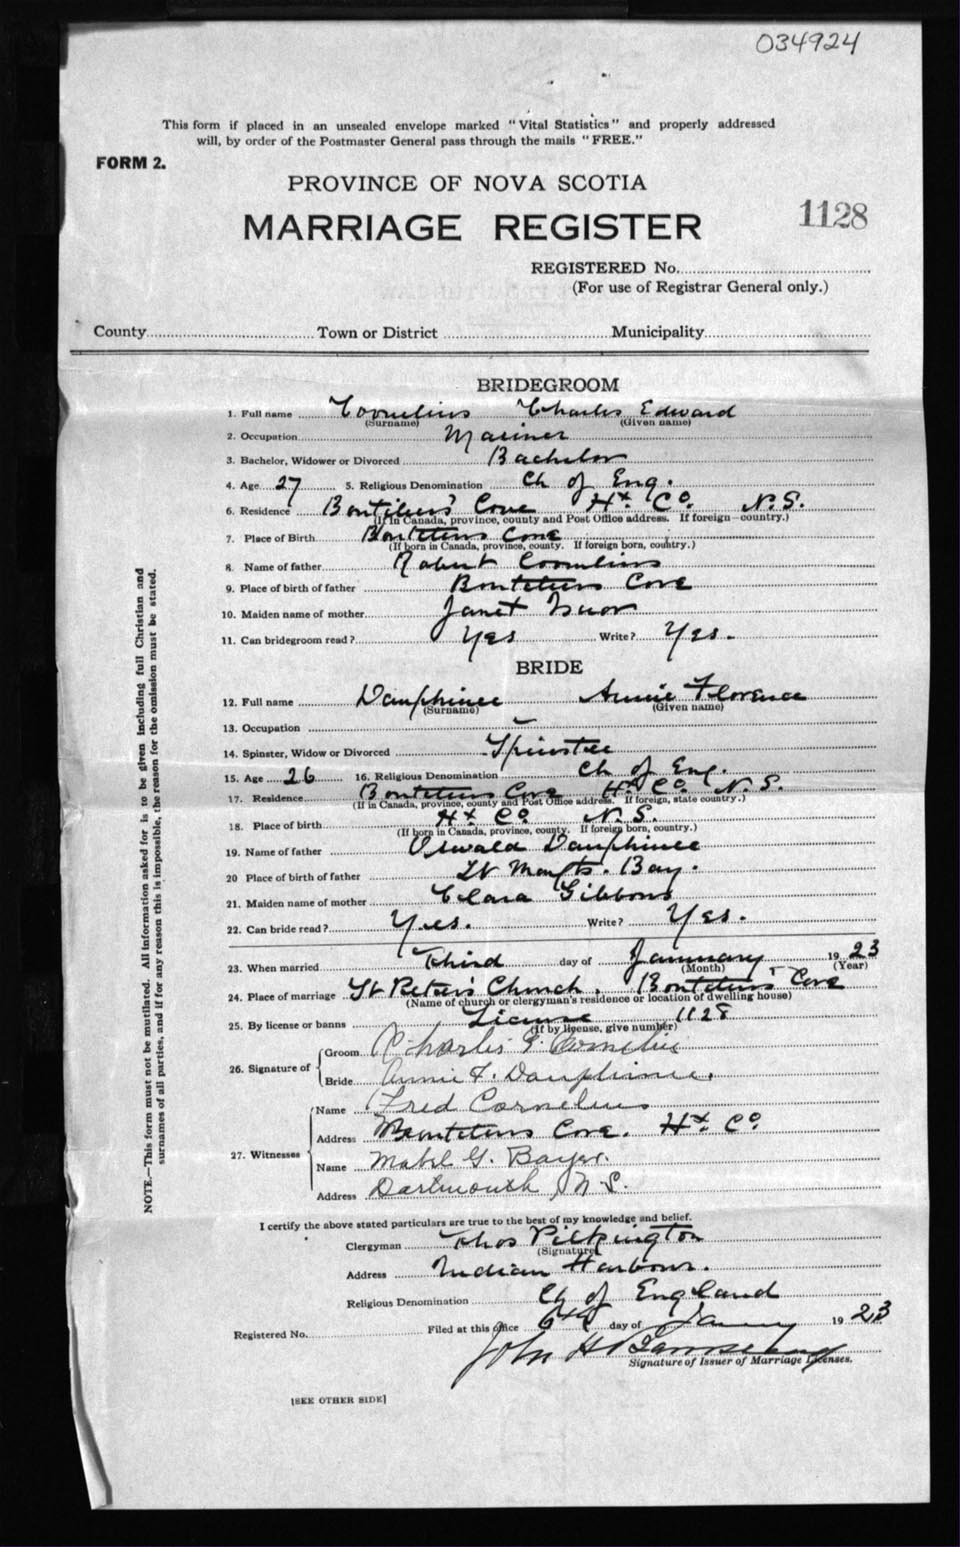 034924
This form if placed in an unsealed envelope marked "Vital Statistics" and properly addressed
will, by order of the Postmaster General pass through the mails "FREE."
FORM 2.
PROVINCE OF NOVA SCOTIA
MARRIAGE REGISTER
1128
REGISTERED No.
(For use of Registrar General only.)
County Town or District Municipality
BRIDEGROOM
1. Full name Cornelius Charles Edward
(Surname) (Given name)
2. Occupation Mariner
3. Bachelor, Widower or Divorced Bachelor
4. Age 27 5. Religious Denomination Ch of Eng.
6. Residence Cove Hx Co. N.S.
(If in Canada, province, county and Post Office address. If foreign—country.)
7. Place of Birth Cove
(If born in Canada, province, county. If foreign born, country.)
8. Name of father Robert Cornelius
9. Place of birth of father Cove
10. Maiden name of mother Janet
11. Can bridegroom read? Yes Write? Yes.
BRIDE
12. Full name Dauphinee Annie Florence
(Surname) (Given name)
13. Occupation —
14. Spinster, Widow or Divorced Spinster
15. Age 26 16. Religious Denomination Ch of Eng.
17. Residence Cove Hx Co N.S.
(If in Canada, province, county and Post Office address. If foreign, state country.)
18. Place of birth Hx Co N.S.
(If born in Canada, province, county. If foreign born, country.)
19. Name of father Oswald Dauphinee
20 Place of birth of father St Bay.
21. Maiden name of mother Clara Gibbons
22. Can bride read? Yes. Write? Yes.
23. When married Third day of January 1923
(Month) (Year)
24. Place of marriage St Peter's Church. Cove
(Name of church or clergyman's residence or location of dwelling house)
25. By license or banns License 1128
(If by license, give number)
26. Signature of
Groom Charles E. Cornelius
Bride Annie F. Dauphinee.
27. Witnesses
Name Fred Cornelius
Address Cove. Hx. Co
Name Mabel G. Bayer.
Address Dartmouth N.S.
I certify the above stated particulars are true to the best of my knowledge and belief.
Clergyman Thos Pilkington
(Signature)
Address Indian Harbour.
Religious Denomination Ch of England
Registered No. Filed at this office 6th day of Jany 1923
John H
Signature of Issuer of Marriage Licenses.
[SEE OTHER SIDE]
NOTE.—This form must not be mutilated. All information asked for is to be given including full Christian and
surnames of all parties, and if for any reason this is impossible, the reason for the omission must be stated.